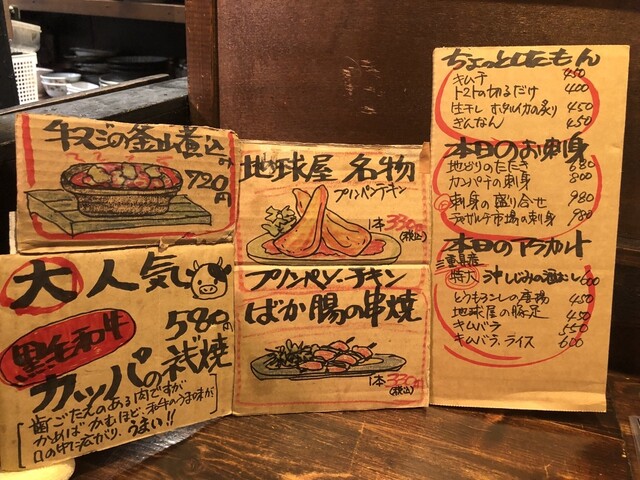 牛スジの釜山煮込み
720円
大人気
黒毛和牛
580円
カッパの浅焼
歯ごたえのある肉ですが
かめばかむほど、和牛のうま味が
口の中に広がり、うまい!!
地球屋 名物
プリンペンチキン
1本 330円
(税込)
プリンペン・チキン
ばか腸の串焼
1本 330円
(税込)
ちょっとしたもん
キムチ 450
トマトの切るだけ 400
生干しホタルイカの炙り 450
ぎんなん 450
本日のお刺身
地どりのたたき 680
カンパチの刺身 800
刺身の盛り合せ 980
市場の刺身 980
本日のアラカルト
三重県産
特大 しじみの酒むし 600
とうもろこしの唐揚 450
地球屋の豚足 450
キムバラ 550
キムバラ、ライス 600